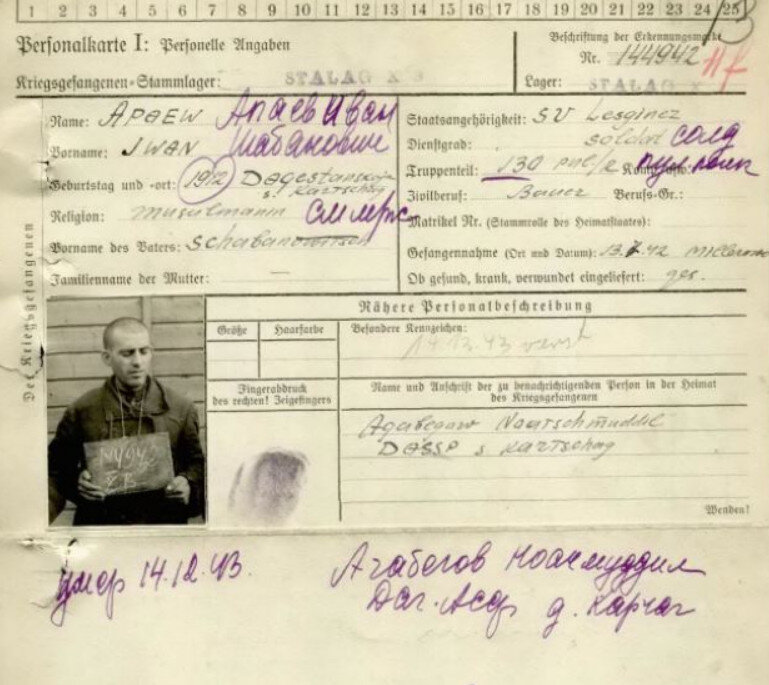 1 2 3 4 5 6 7 8 9 10 11 12 13 14 15 16 17 18 19 20 21 22 23 24 25
Personalkarte I: Personelle Angaben
Beschriftung der Erkennungsmarke
Nr. 144942
Kriegsgefangenen-Stammlager: STALAG X
Lager: STALAG X
Name: APAEW Апаев Иван
Staatsangehörigkeit: SU Lesginez
Vorname: IWAN Шабанович
Dienstgrad: soldat солд
Geburtstag und -ort: 1912 Dagestanskaja s. Kartschag
Truppenteil: 130 пул полк
Zivilberuf: Bauer Berufs-Gr.:
Religion: musulmann
Matrikel Nr. (Stammrolle des Heimatstaates):
Vorname des Vaters: Schabanowitsch
Gefangennahme (Ort und Datum): 13.7.42 Millerowo
Familienname der Mutter: —
Ob gesund, krank, verwundet eingeliefert: ges.
Der Kriegsgefangenen
Nähere Personalbeschreibung
Größe Haarfarbe Besondere Kennzeichen:
14.12.43 verst
Fingerabdruck
des rechten! Zeigefingers
Name und Anschrift der zu benachrichtigenden Person in der Heimat
des Kriegsgefangenen
Agabegaw
DASSP s Kartschag
Wenden!
умер 14.12.43. Агабегов
Даг. Асср д. Карчаг